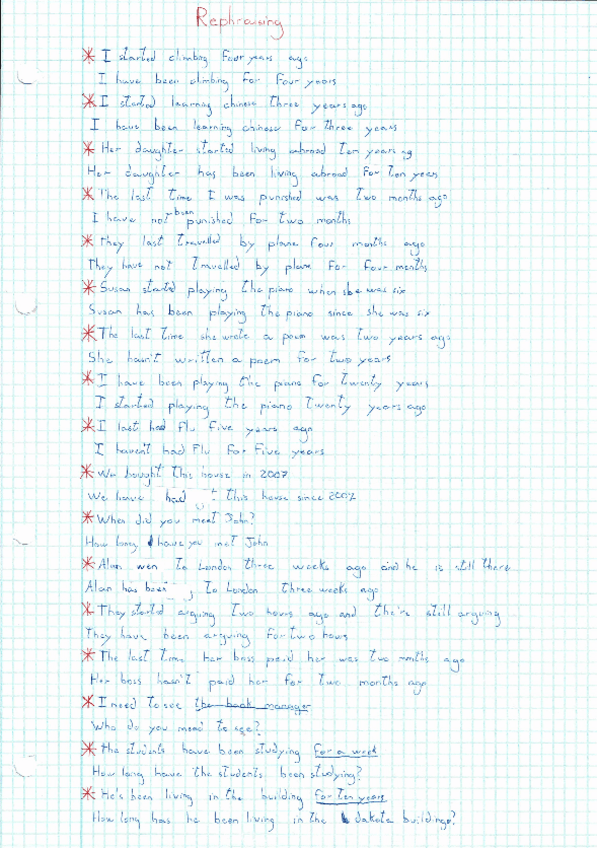 Rephrasing
* I started climbing four years ago
I have been climbing for four years
* I started learning chinese three years ago
I have been learning chinese for three years
* Her daughter started living abroad ten years ag
Her daughter has been living abroad for ten years
* The last time I was punished was two months ago
I have not been punished for two months
* They last travelled by plane four months ago
They have not travelled by plane for four months
* Susan started playing the piano when she was six
Susan has been playing the piano since she was six
* The last time she wrote a poem was two years ago
She hasn't written a poem for two years
* I have been playing the piano for twenty years
I started playing the piano twenty years ago
* I last had flu five years ago
I haven't had flu for five years
* We bought this house in 2007
We have had this house since 2007
* When did you meet John?
How long have you met John
* Alan wen to London three weeks ago and he is still there
Alan has been to London three weeks ago
* They started arguing two hours ago and the're still arguing
They have been arguing for two hours
* The last time her boss paid her was two months ago
Her boss hasn't paid her for two months ago
* I need to see the bank manager
Who do you need to see?
* The students have been studying for a week
How long have the students been studying?
* He's been living in the building for ten years
How long has he been living in the dakota buildings?